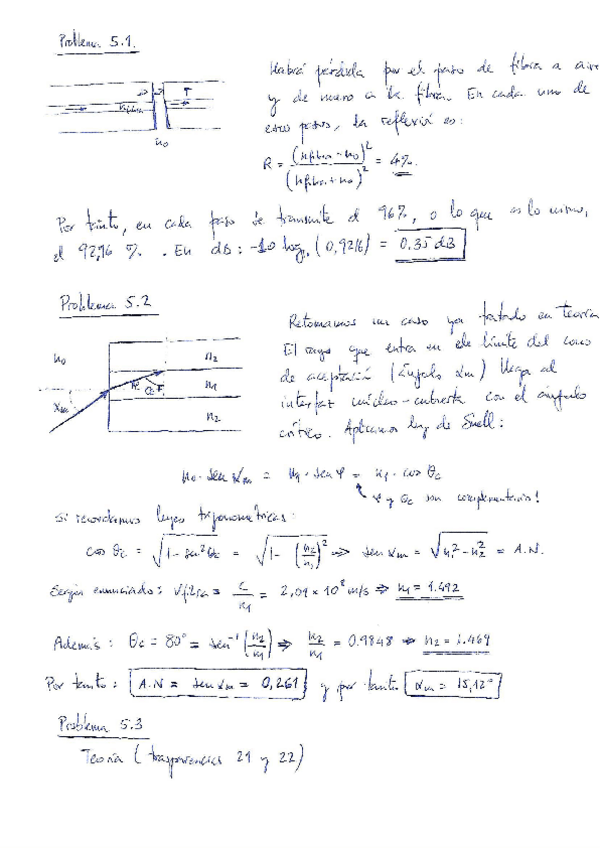 Problema 5.1.
Habrá pérdida por el paso de fibra a aire
y de nuevo a la fibra. En cada uno de
estos pasos, la reflexión es:
T
nfibra
n0
R = (nfibra - n0)² / (nfibra + n0)² = 4%.
Por tanto, en cada paso se transmite el 96%, o lo que es lo mismo,
el 92,16 %. En dB: -10 log (0,9216) = 0,35 dB
Problema 5.2
Retomamos un caso ya tratado en teoría
El rayo que entra en el límite del cono
de aceptación (ángulo αm) llega al
interfaz núcleo-cubierta con el ángulo
crítico. Aplicamos ley de Snell:
n0
n2
n1
n2
αm
θc
n0 · sen αm = n1 · sen φ = n1 · cos θc
φ y θc son complementarios!
Si recordamos leyes trigonométricas:
cos θc = √(1 - sen² θc) = √(1 - (n2/n1)²) ⇒ sen αm = √(n1² - n2²) = A.N.
Según enunciado: Vfibra = c/n1 = 2,01 × 10⁸ m/s ⇒ n1 = 1.492
Además: θc = 80° = sen⁻¹(n2/n1) ⇒ n2/n1 = 0.9848 ⇒ n2 = 1.469
Por tanto: A.N = sen αm = 0,261 y por tanto αm = 15,12°
Problema 5.3
Teoría (trasparencias 21 y 22)